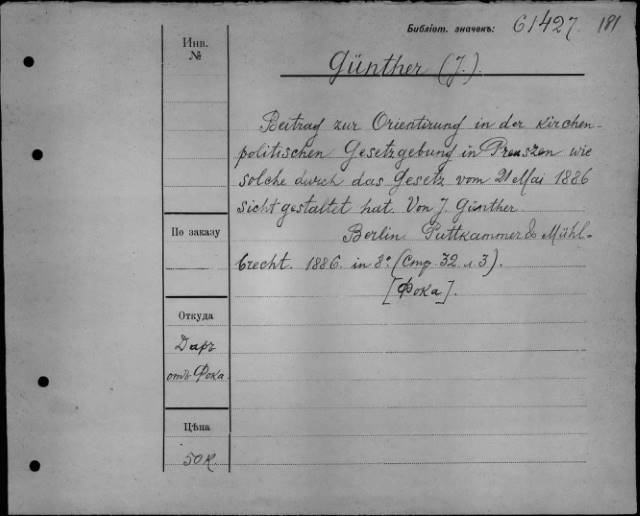 Библіот. значекъ: 61427. 181
Инв. №
Günther (J.).
Beitrag zur Orientirung in der kirchen-
politischen Gesetzgebung in Preuszen wie
solche durch das Gesetz vom 21 Mai 1886
sich gestaltet hat. Von J. Günther.
Berlin Puttkammer & Mühl-
brecht. 1886. in 8°. (Стр. 32 и 3).
[Фока].
По заказу
Откуда
Даръ
отъ Фока.
Цѣна
50 К.